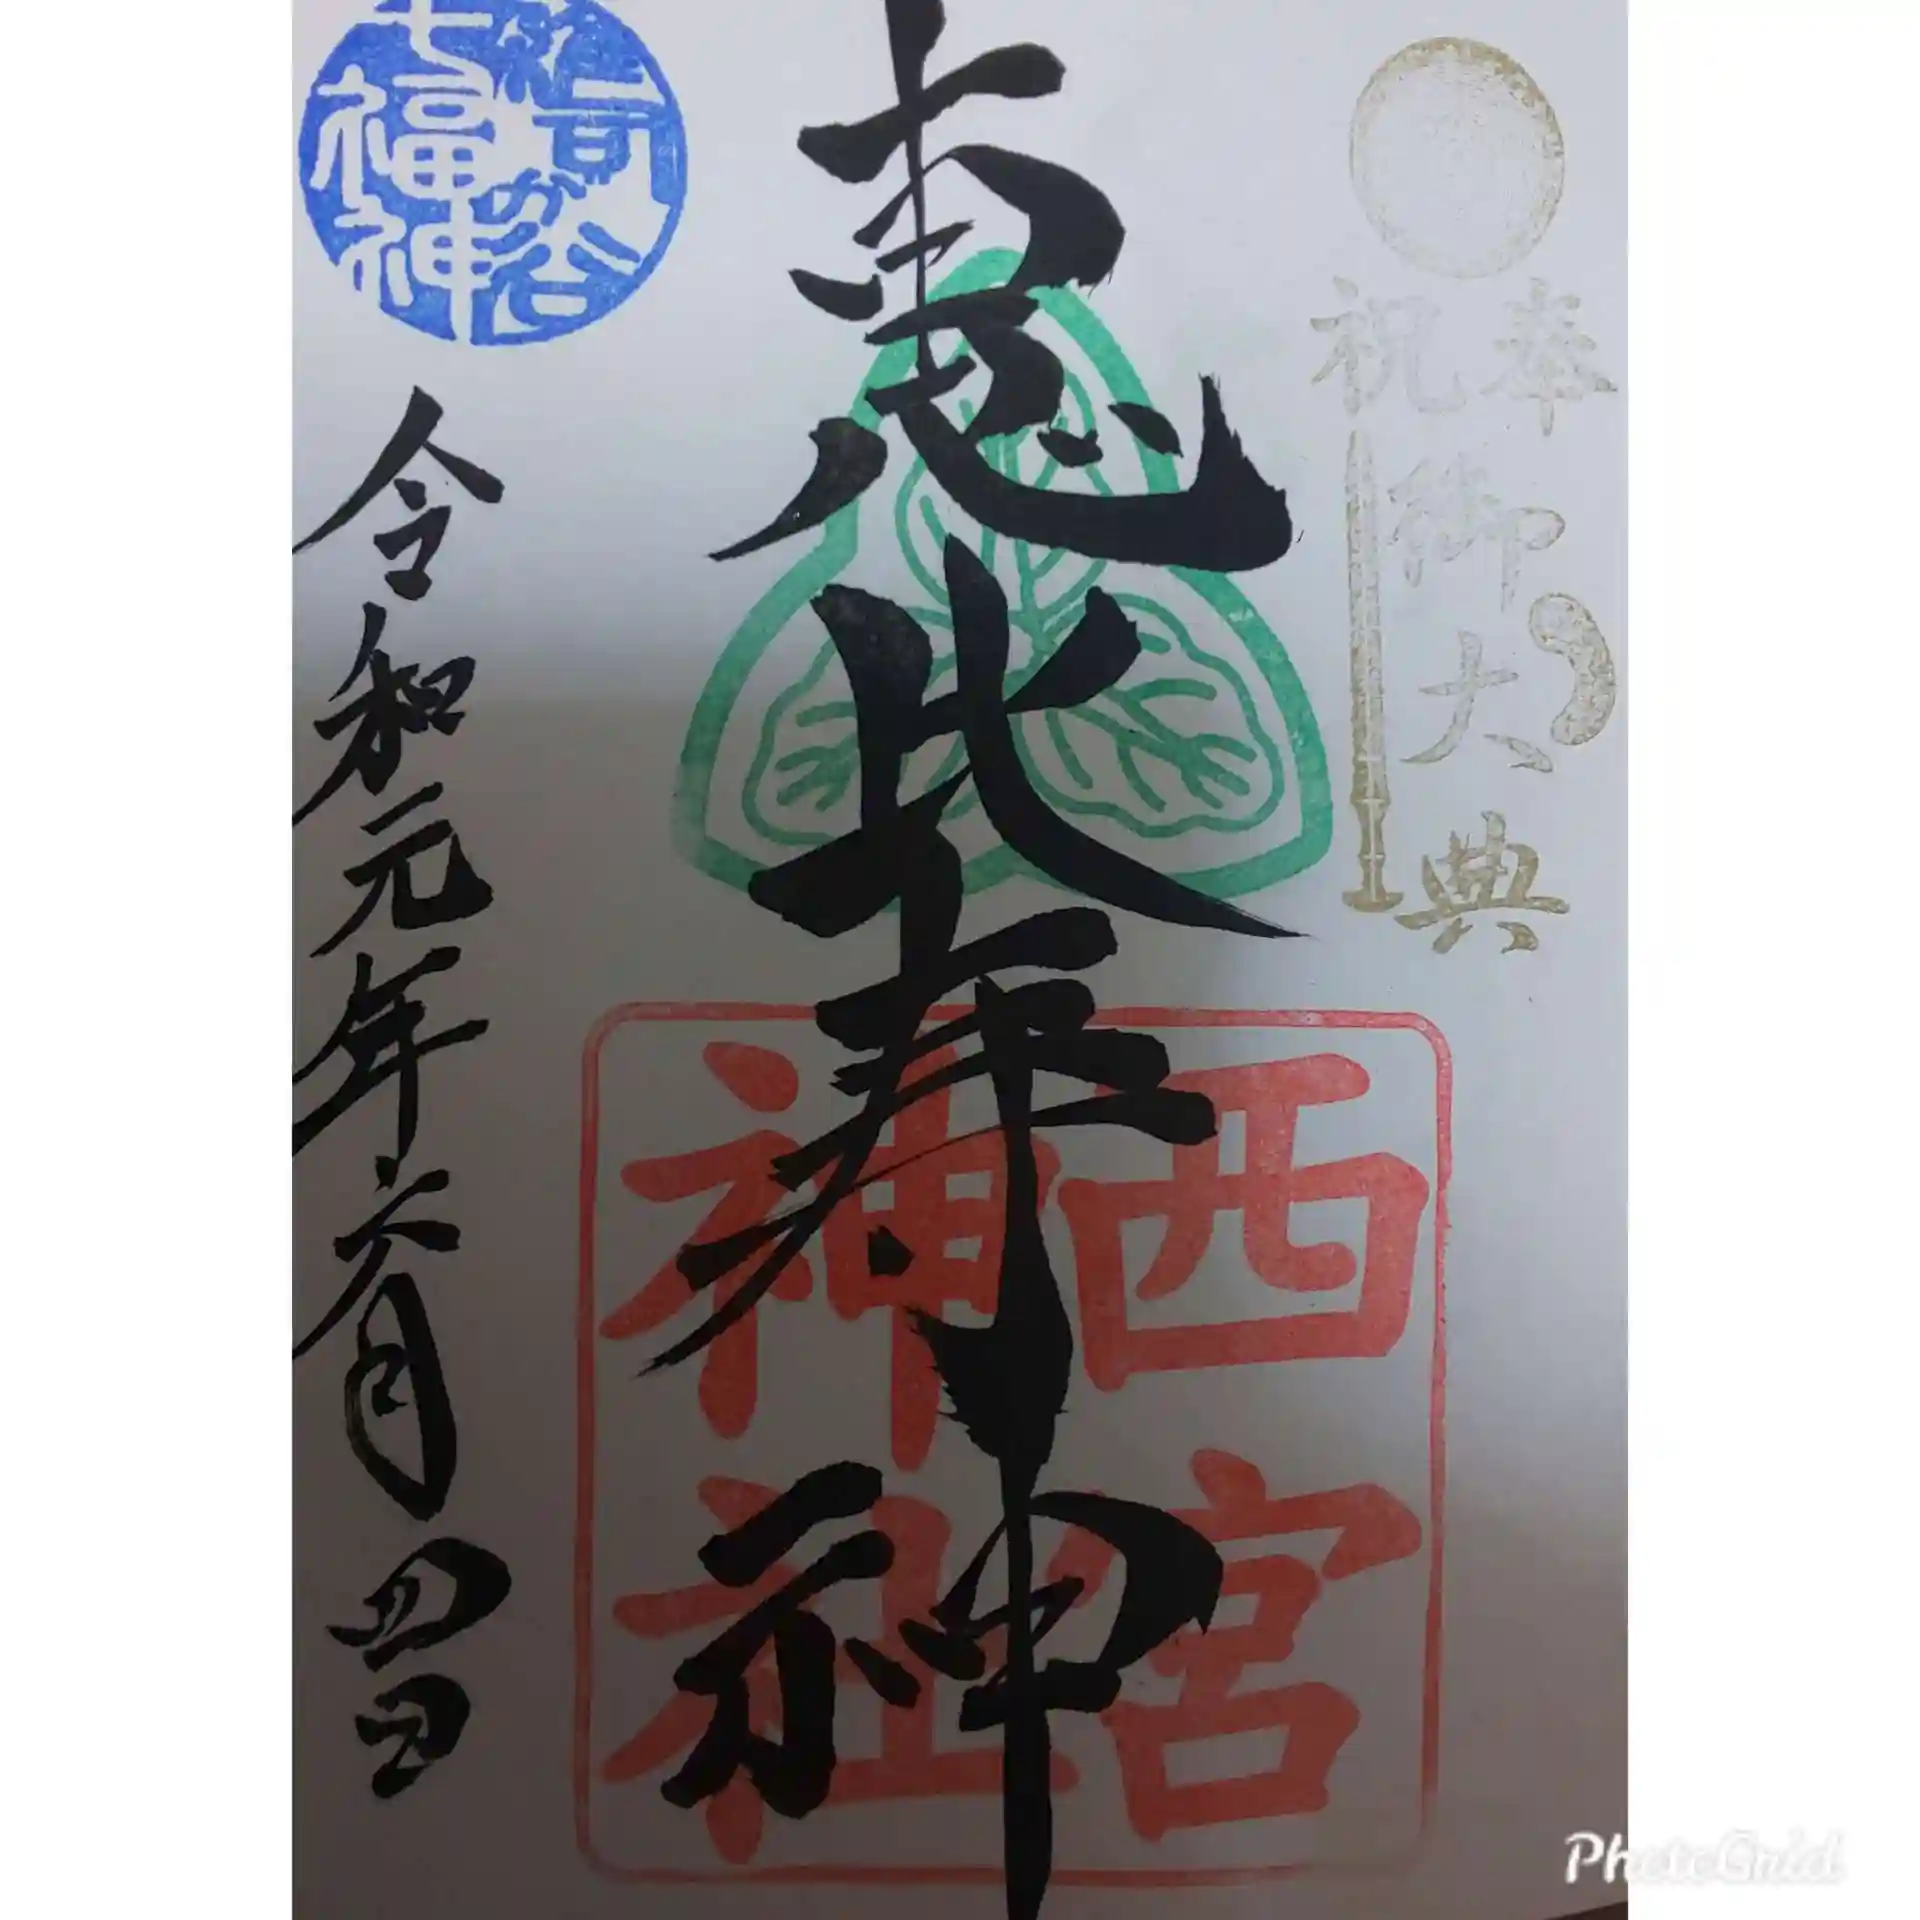 奉祝
御大典
恵比寿神
西宮
神社
雑司が谷
七福神
令和元年六月四日
PhotoGrid